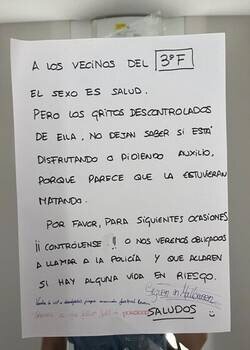 A LOS VECINOS DEL 3ºF
EL SEXO ES SALUD.
PERO LOS GRITOS DESCONTROLADOS
DE EILA, NO DEJAN SABER SI ESTÁ
DISFRUTANDO O PIDIENDO AUXILIO,
PORQUE PARECE QUE LA ESTUVIERAN
MATANDO.
POR FAVOR, PARA SIGUIENTES OCASIONES
¡¡ CONTRÓLENSE !! O NOS VEREMOS OBLIGADOS
A LLAMAR A LA POLICÍA Y QUE ACLAREN
SI HAY ALGUNA VIDA EN RIESGO.
SALUDOS